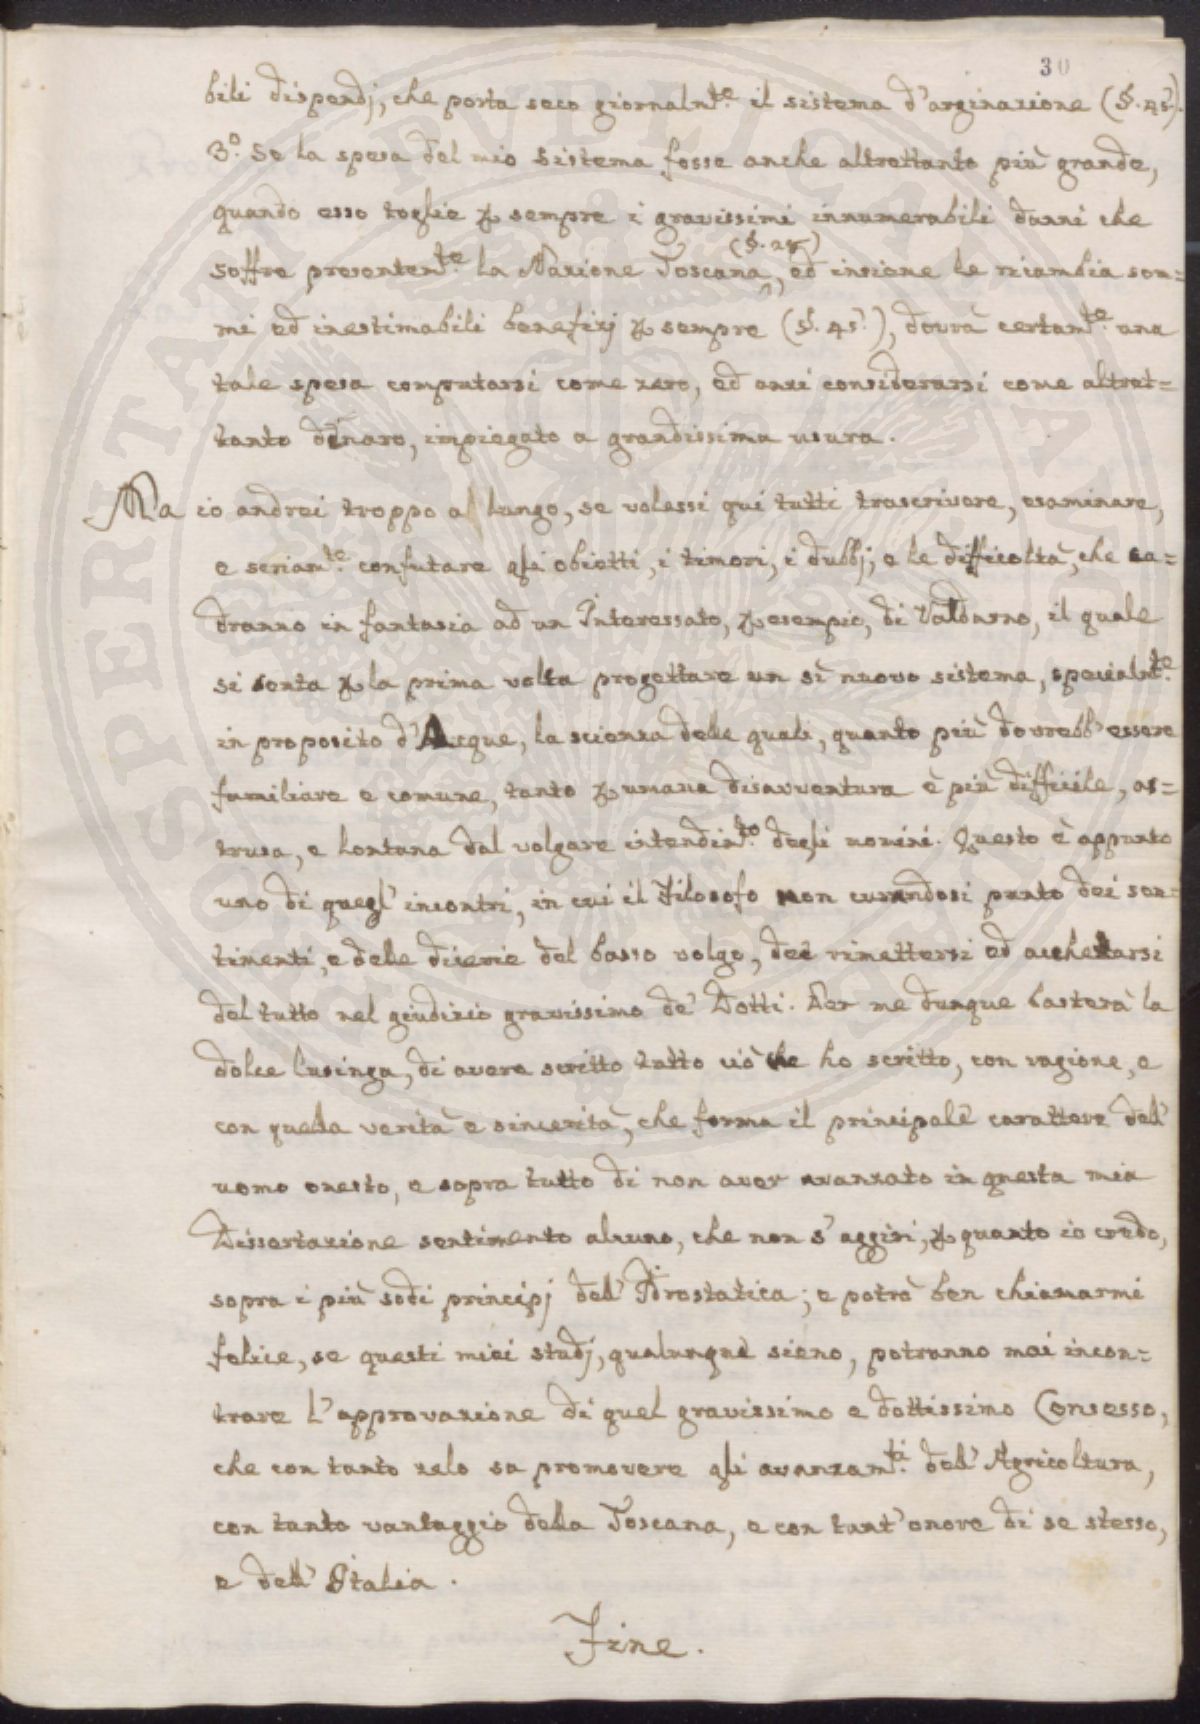 30
bili dispendj, che porta seco giornalm.te il sistema d'arginazione (§. 45.).
3.o Se la spesa del mio sistema fosse anche altrettanto più grande,
quando esso toglie p sempre i gravissimi innumerabili danni che
(§. 25.)
soffre presentem.te la Nazione Toscana, ed insieme le ricambia som=
mi ed inestimabili benefizj p sempre (§. 45.), dovrà certam.te una
tale spesa computarsi come zero, ed anzi considerarsi come altret=
tanto denaro, impiegato a grandissima usura.
Ma io andrei troppo al lungo, se volessi qui tutti trascrivere, esaminare,
e seriam.te confutare gli obietti, i timori, i dubbj, e le difficoltà, che ca=
dranno in fantasia ad un Interessato, p esempio, di Valdarno, il quale
si senta p la prima volta progettare un sì nuovo sistema, specialm.te
in proposito d'Acque, la scienza delle quali, quanto più dovrebb'essere
familiare e comune, tanto p umana disavventura è più difficile, as=
trusa, e lontana dal volgare intendim.to degli uomini. Questo è appunto
uno di quegl'incontri, in cui il Filosofo non curandosi punto dei sen=
timenti, e delle dicerie del basso volgo, dee rimettersi ed acchetarsi
del tutto nel giudizio gravissimo de' Dotti. Per me dunque basterà la
dolce lusinga, di avere scritto tutto ciò che ho scritto, con ragione, e
con quella verità e sincerità, che forma il principale carattere dell'
uomo onesto, e sopra tutto di non aver avanzato in questa mia
Dissertazione sentimento alcuno, che non s'aggiri, p quanto io credo,
sopra i più sodi principj dell'Idrostatica; e potrò ben chiamarmi
felice, se questi miei studj, qualunque sieno, potranno mai incon=
trare l'approvazione di quel gravissimo e dottissimo Consesso,
che con tanto zelo sa promovere gli avanzam.ti dell'Agricoltura,
con tanto vantaggio della Toscana, e con tant'onore di se stesso,
e dell'Italia.
Fine.